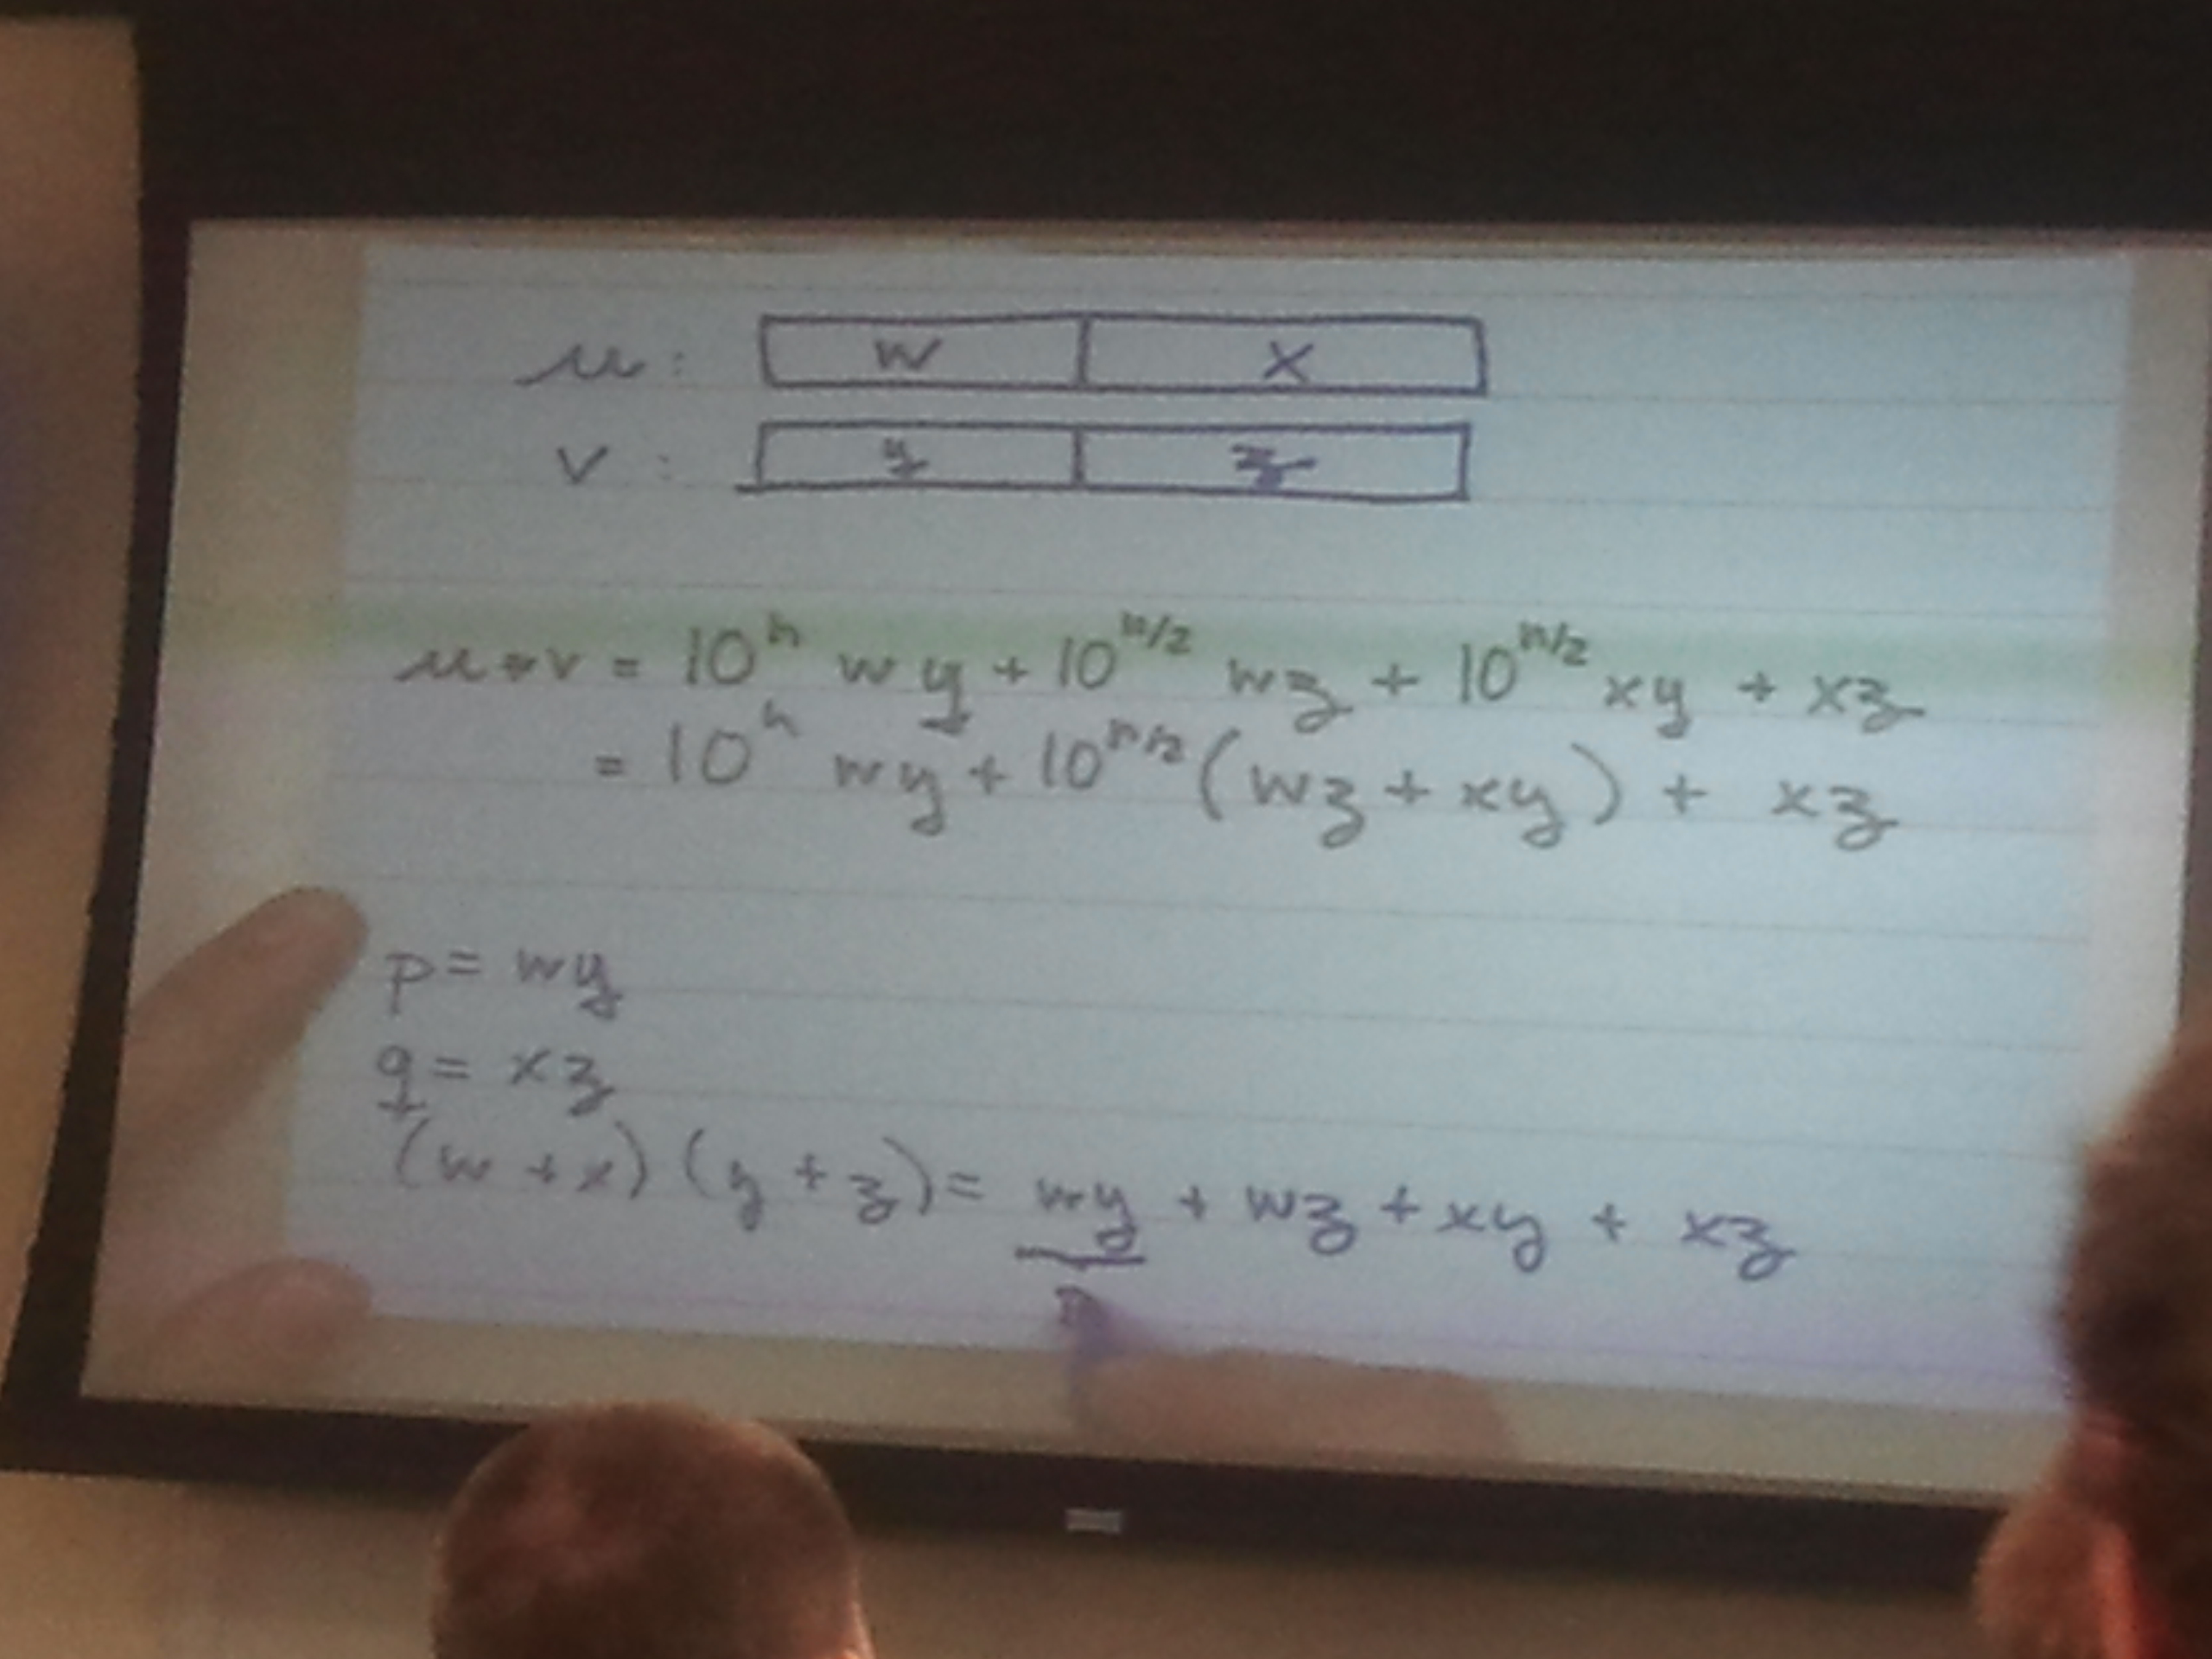 u: w x
v: y z
u*v = 10^n wy + 10^n/2 wz + 10^n/2 xy + xz
= 10^n wy + 10^n/2 (wz + xy) + xz
p = wy
q = xz
(w + x) (y + z) = wy + wz + xy + xz
p